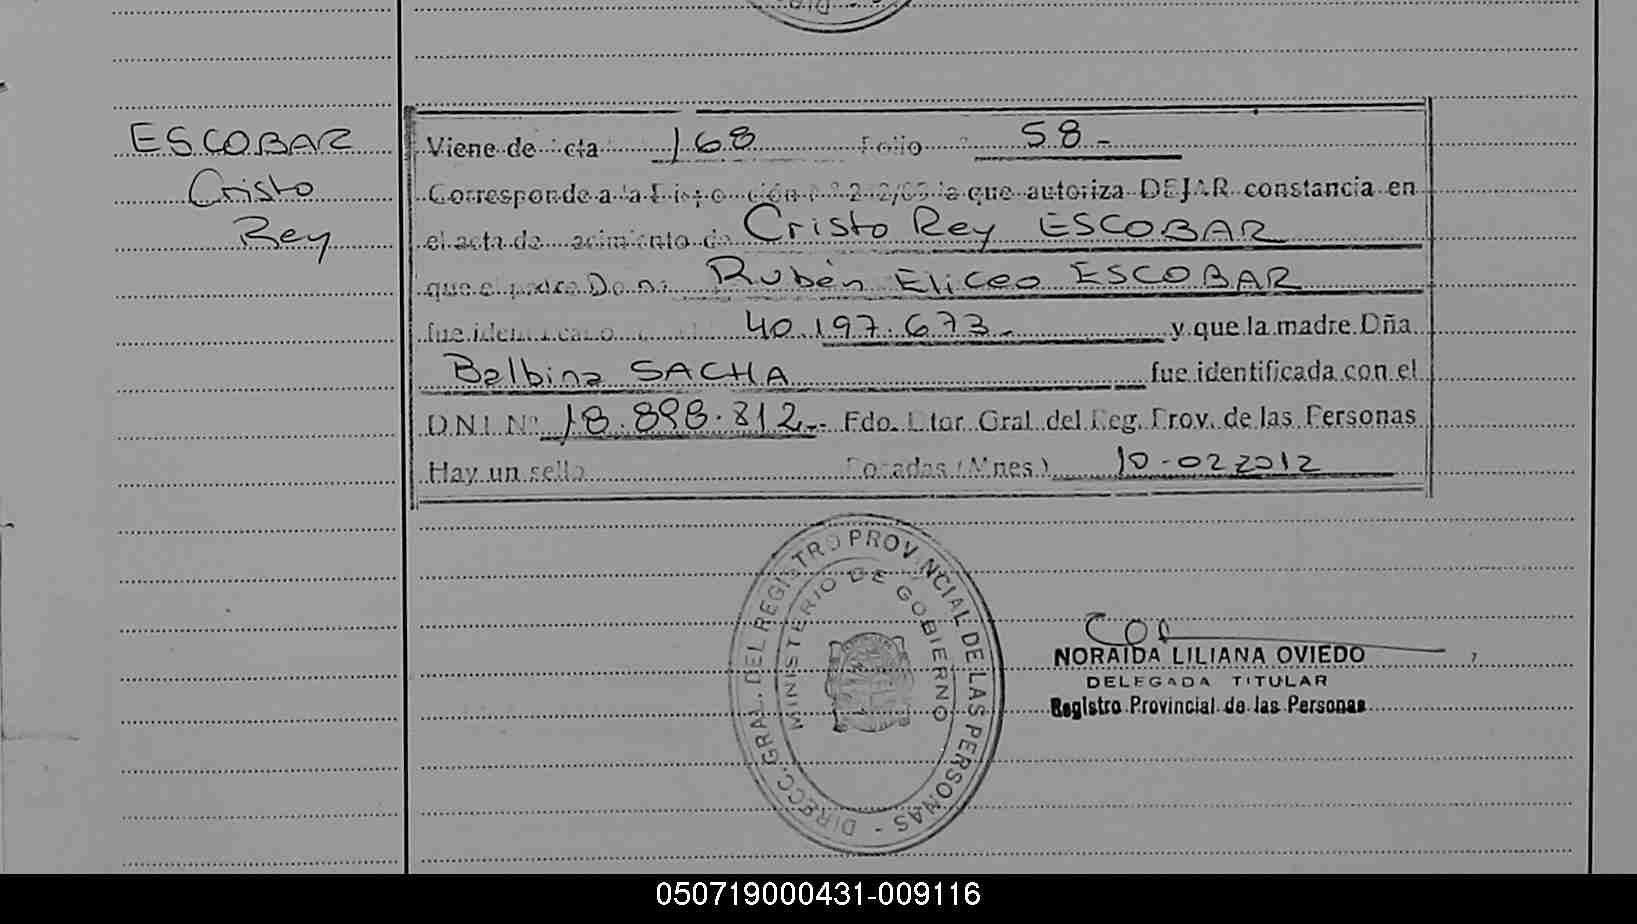 ESCOBAR
Cristo
Rey
Viene de cta 168 Folio 58-
Corresponde a la que autoriza DEJAR constancia en
el acta de nacimiento de Cristo Rey ESCOBAR
que el padre Don: Rubén Eliceo ESCOBAR
fue identificado 40.197.673- y que la madre Dña
Balbina SACHA fue identificada con el
D N I Nº 18.898.812-- Fdo. Dtor Gral del Reg. Prov. de las Personas
Hay un sello Posadas (Mnes.) 10-02 2012
DIRECC. GRAL. DEL REGISTRO PROVINCIAL DE LAS PERSONAS -
MINISTERIO DE GOBIERNO
NORAIDA LILIANA OVIEDO
DELEGADA TITULAR
Registro Provincial de las Personas
050719000431-009116